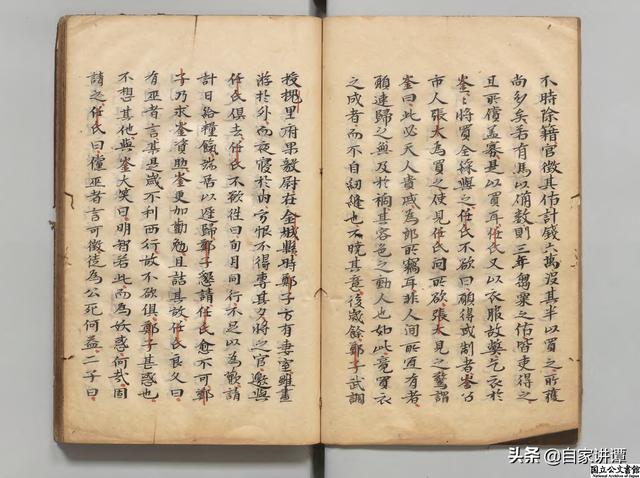 不時除籍官徵其估計錢六萬設其半以買之所獲
尚多矣若有馬以備數則三年芻粟之估皆吏得之
且所償蓋寡是以買耳任氏又以衣服故弊乞衣於
崟〻將買全綵與之任氏不欲曰願得成制者崟召
市人張大為買之使見任氏問所欲張大見之驚謂
崟曰此必天人貴戚為郎所竊耳非人間所宜有者
願速歸之無及於禍其容色之動人也如此竟買衣
之成者而不自紉縫也不曉其意後歲餘鄭子武調
授槐里府果毅尉在金城縣時鄭子方有妻室雖晝
游於外而夜寢於內多恨不得專其夕將之官邀與
任氏俱去任氏不欲往曰旬月同行不足以為歡請
計日給糧餼端居以遲歸鄭子懇請任氏愈不可鄭
子乃求崟資助崟更加勸勉且詰其故任氏良久曰
有巫者言某是歲不利西行故不欲俱鄭子甚惑也
不想其他與崟大笑曰明智若此而為妖惑何哉固
請之任氏曰儻巫者言可徵徒為公死何益二子曰
头条 @自家讲谭
国立公文書館
National Archives of Japan